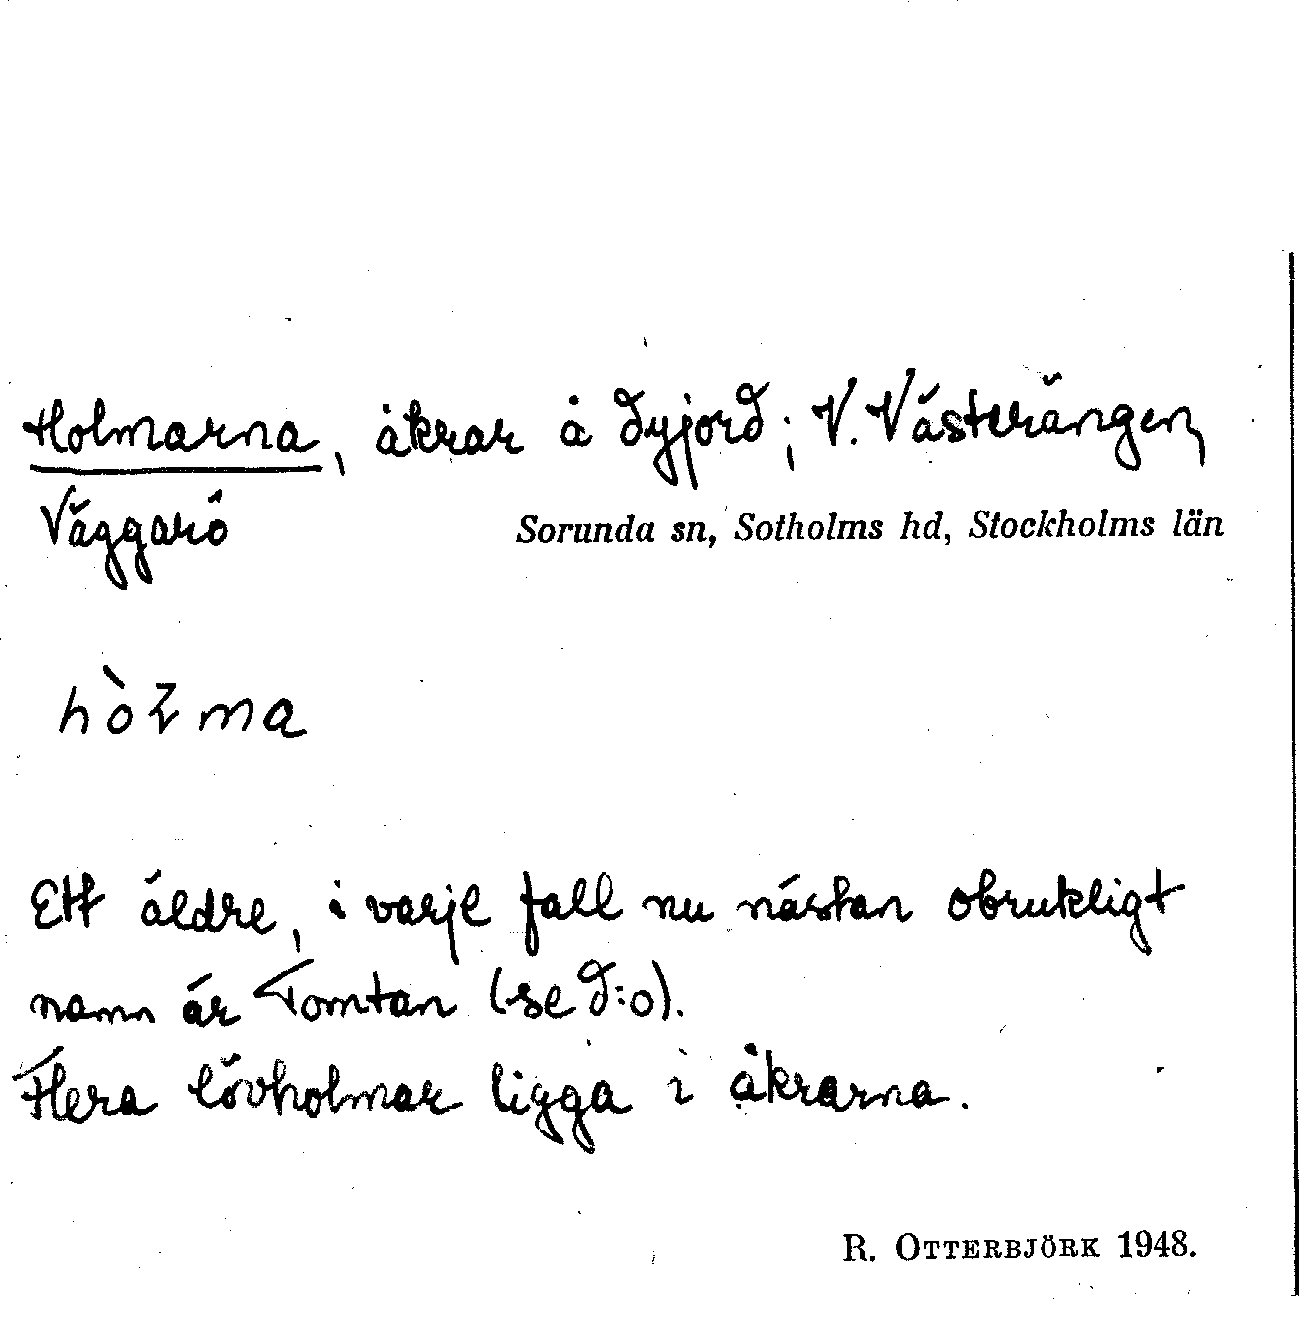 Holmarna, åkrar å dyjord; V. Västerängen,
Väggarö
Sorunda sn, Sotholms hd, Stockholms län
Ett äldre, i varje fall nu nästan obrukligt
namn är Tomtan (se d:o).
Flera lövholmar ligga i åkrarna.
R. OTTERBJÖRK 1948.